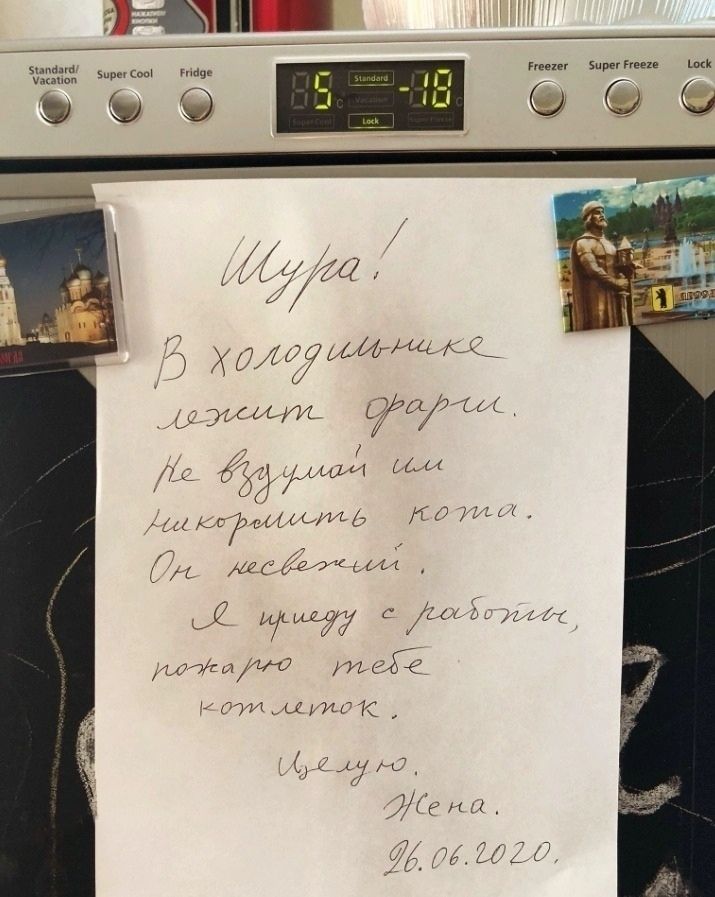 НАЖАТИЕМ
КНОПКИ
Standard/
Vacation
Super Cool
Fridge
5 C
Standard
Vacation
Lock
-18 C
Super Cool
Super Freeze
Freezer
Super Freeze
Lock
Шура!
В холодильнике
лежит фарш.
Не вздумай им
накормить кота.
Он несвежий.
Я приеду с работы,
пожарю тебе
котлеток.
Целую.
Жена.
26.06.2020.